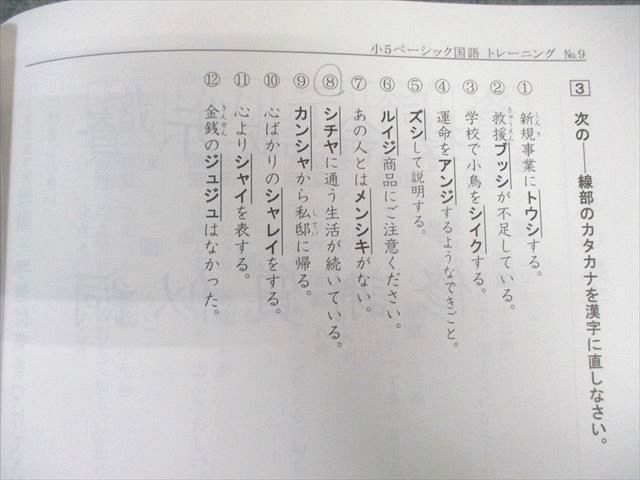 小5ベーシック国語 トレーニング No.9
3 次の――線部のカタカナを漢字に直しなさい。
① 新規事業にトウシする。
② 救援ブッシが不足している。
③ 学校で小鳥をシイクする。
④ 運命をアンジするようなできごと。
⑤ ズシして説明する。
⑥ ルイジ商品にご注意ください。
⑦ あの人とはメンシキがない。
⑧ シチヤに通う生活が続いている。
⑨ カンシャから私邸に帰る。
⑩ 心ばかりのシャレイをする。
⑪ 心よりシャイを表する。
⑫ 金銭のジュジュはなかった。